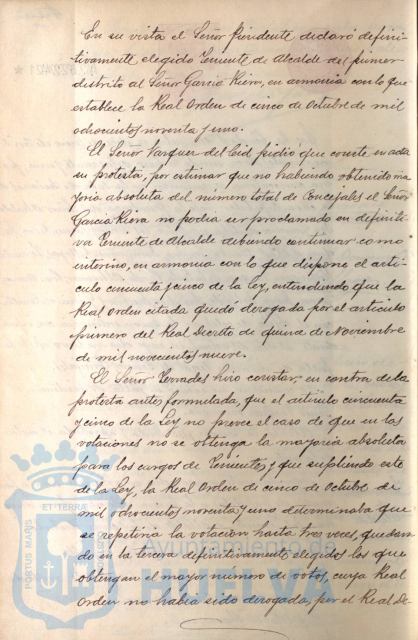 En su vista el Señor Presidente declaró defini-
tivamente elegido Teniente de Alcalde del primer
distrito al Señor Garcia Riera, en armonía con lo que
establece la Real Orden de cinco de Octubre de mil
ochocientos noventa y uno.
El Señor Vazquez del Cid pidió que conste en acta
su protesta, por estimar que no habiendo obtenido ma
yoria absoluta del número total de Concejales el Señor
Garcia Riera no podia ser proclamado en definiti
va Teniente de Alcalde debiendo continuar como
interino, en armonia con lo que dispone el artí-
culo cincuenta y cinco de la Ley, entendiendo que la
Real Orden citada quedó derogada por el artículo
primero del Real Decreto de quince de Noviembre
de mil novecientos nueve.
El Señor Terrades hizo constar, en contra de la
protesta antes formulada, que el artículo cincuenta
y cinco de la Ley no prevee el caso de que en las
votaciones no se obtenga la mayoria absoluta
para los cargos de Tenientes, y que supliendo este
de la Ley, la Real Orden de cinco de Octubre de
mil ochocientos noventa y uno determinaba que
se repetiria la votación hasta tres veces, quedan
do en la tercera definitivamente elegidos los que
obtengan el mayor numero de votos, cuya Real
Orden no habia sido derogada, por el Real De-
PORTUS MARIS ET TERRAE
Ayuntamiento de
HUELVA